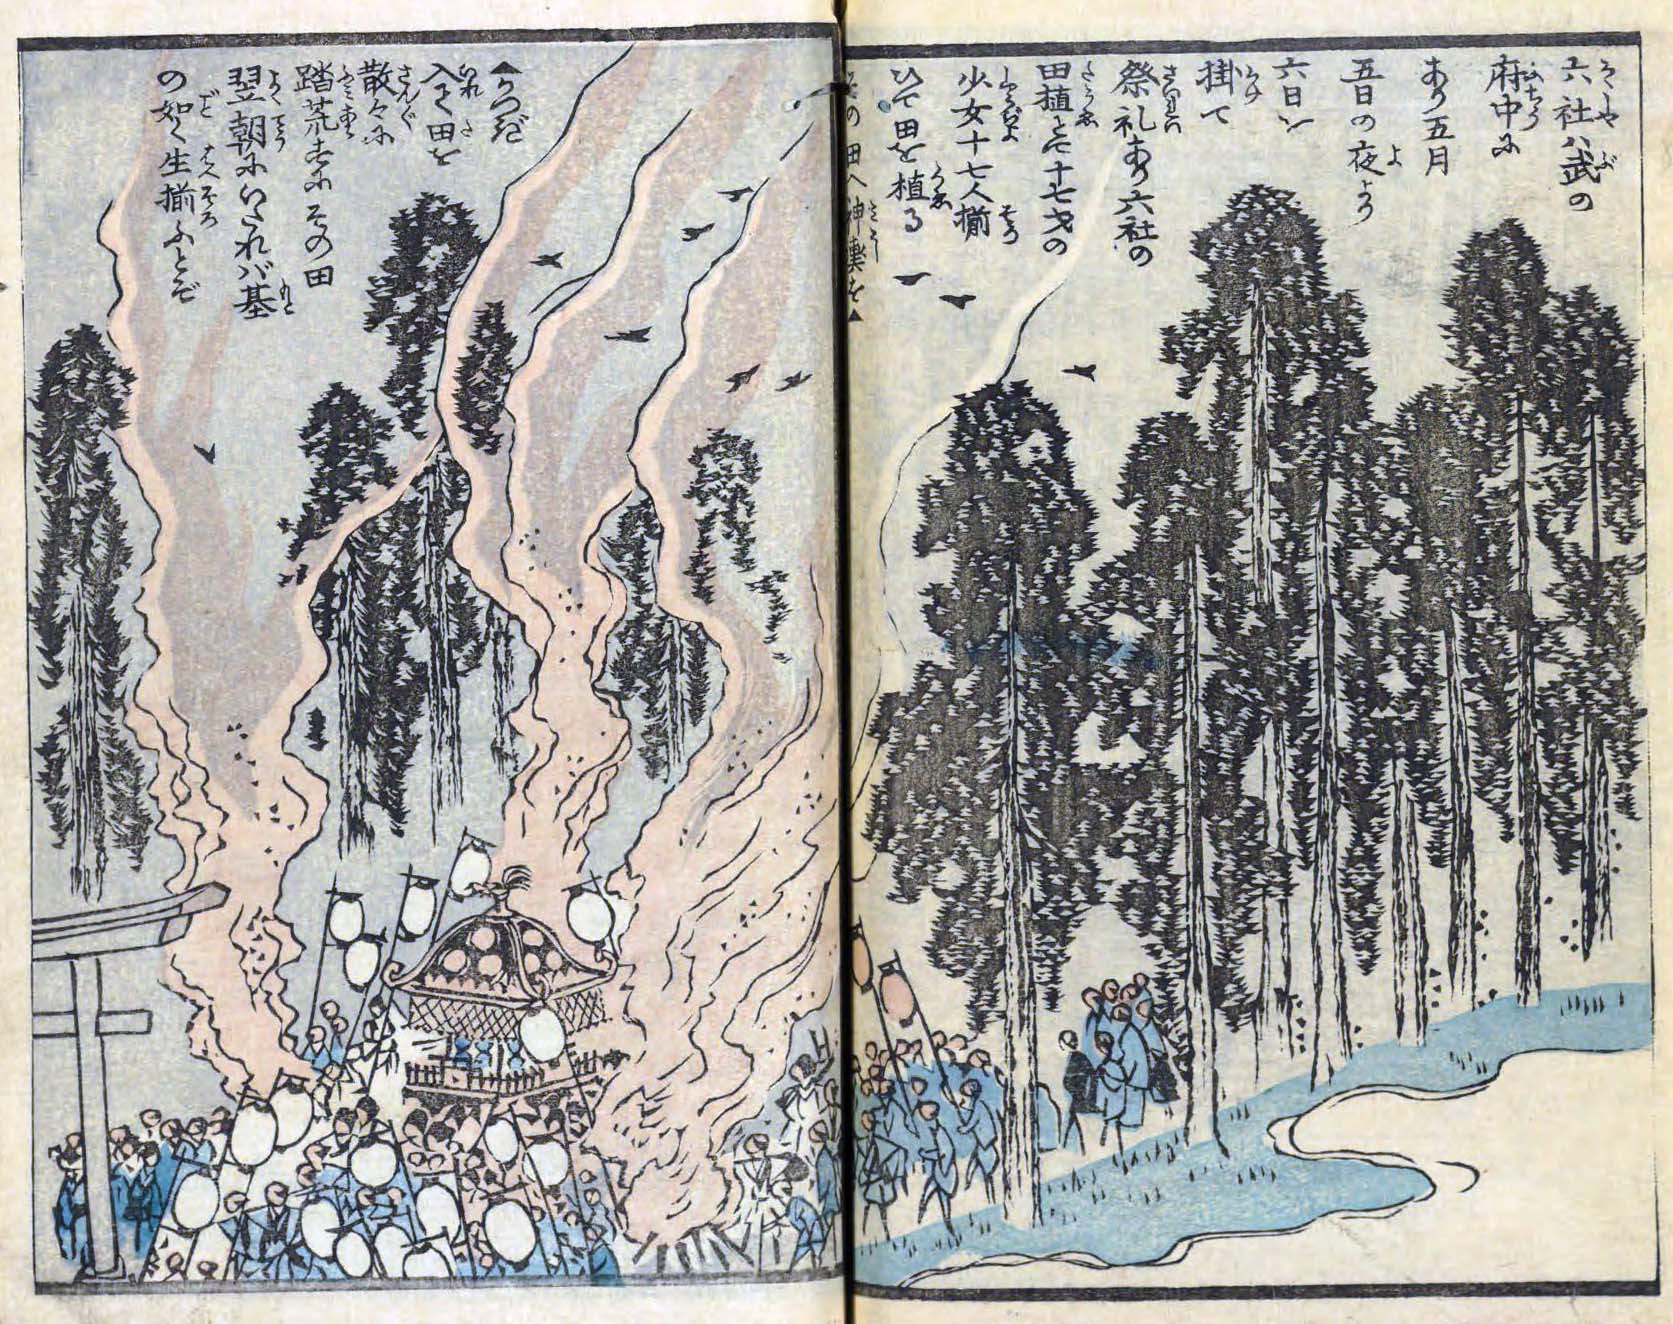 六社ハ武の
府中に
あり五月
五日の夜より
六日に
掛て
祭礼あり六社の
田植とて十七才の
少女十七人揃
ひて田を植る
その田へ神輿を▲
▲かつぎ
入て田を
散々に
踏荒すにその田
翌朝にいたれバ基
の如く生揃ふとぞ